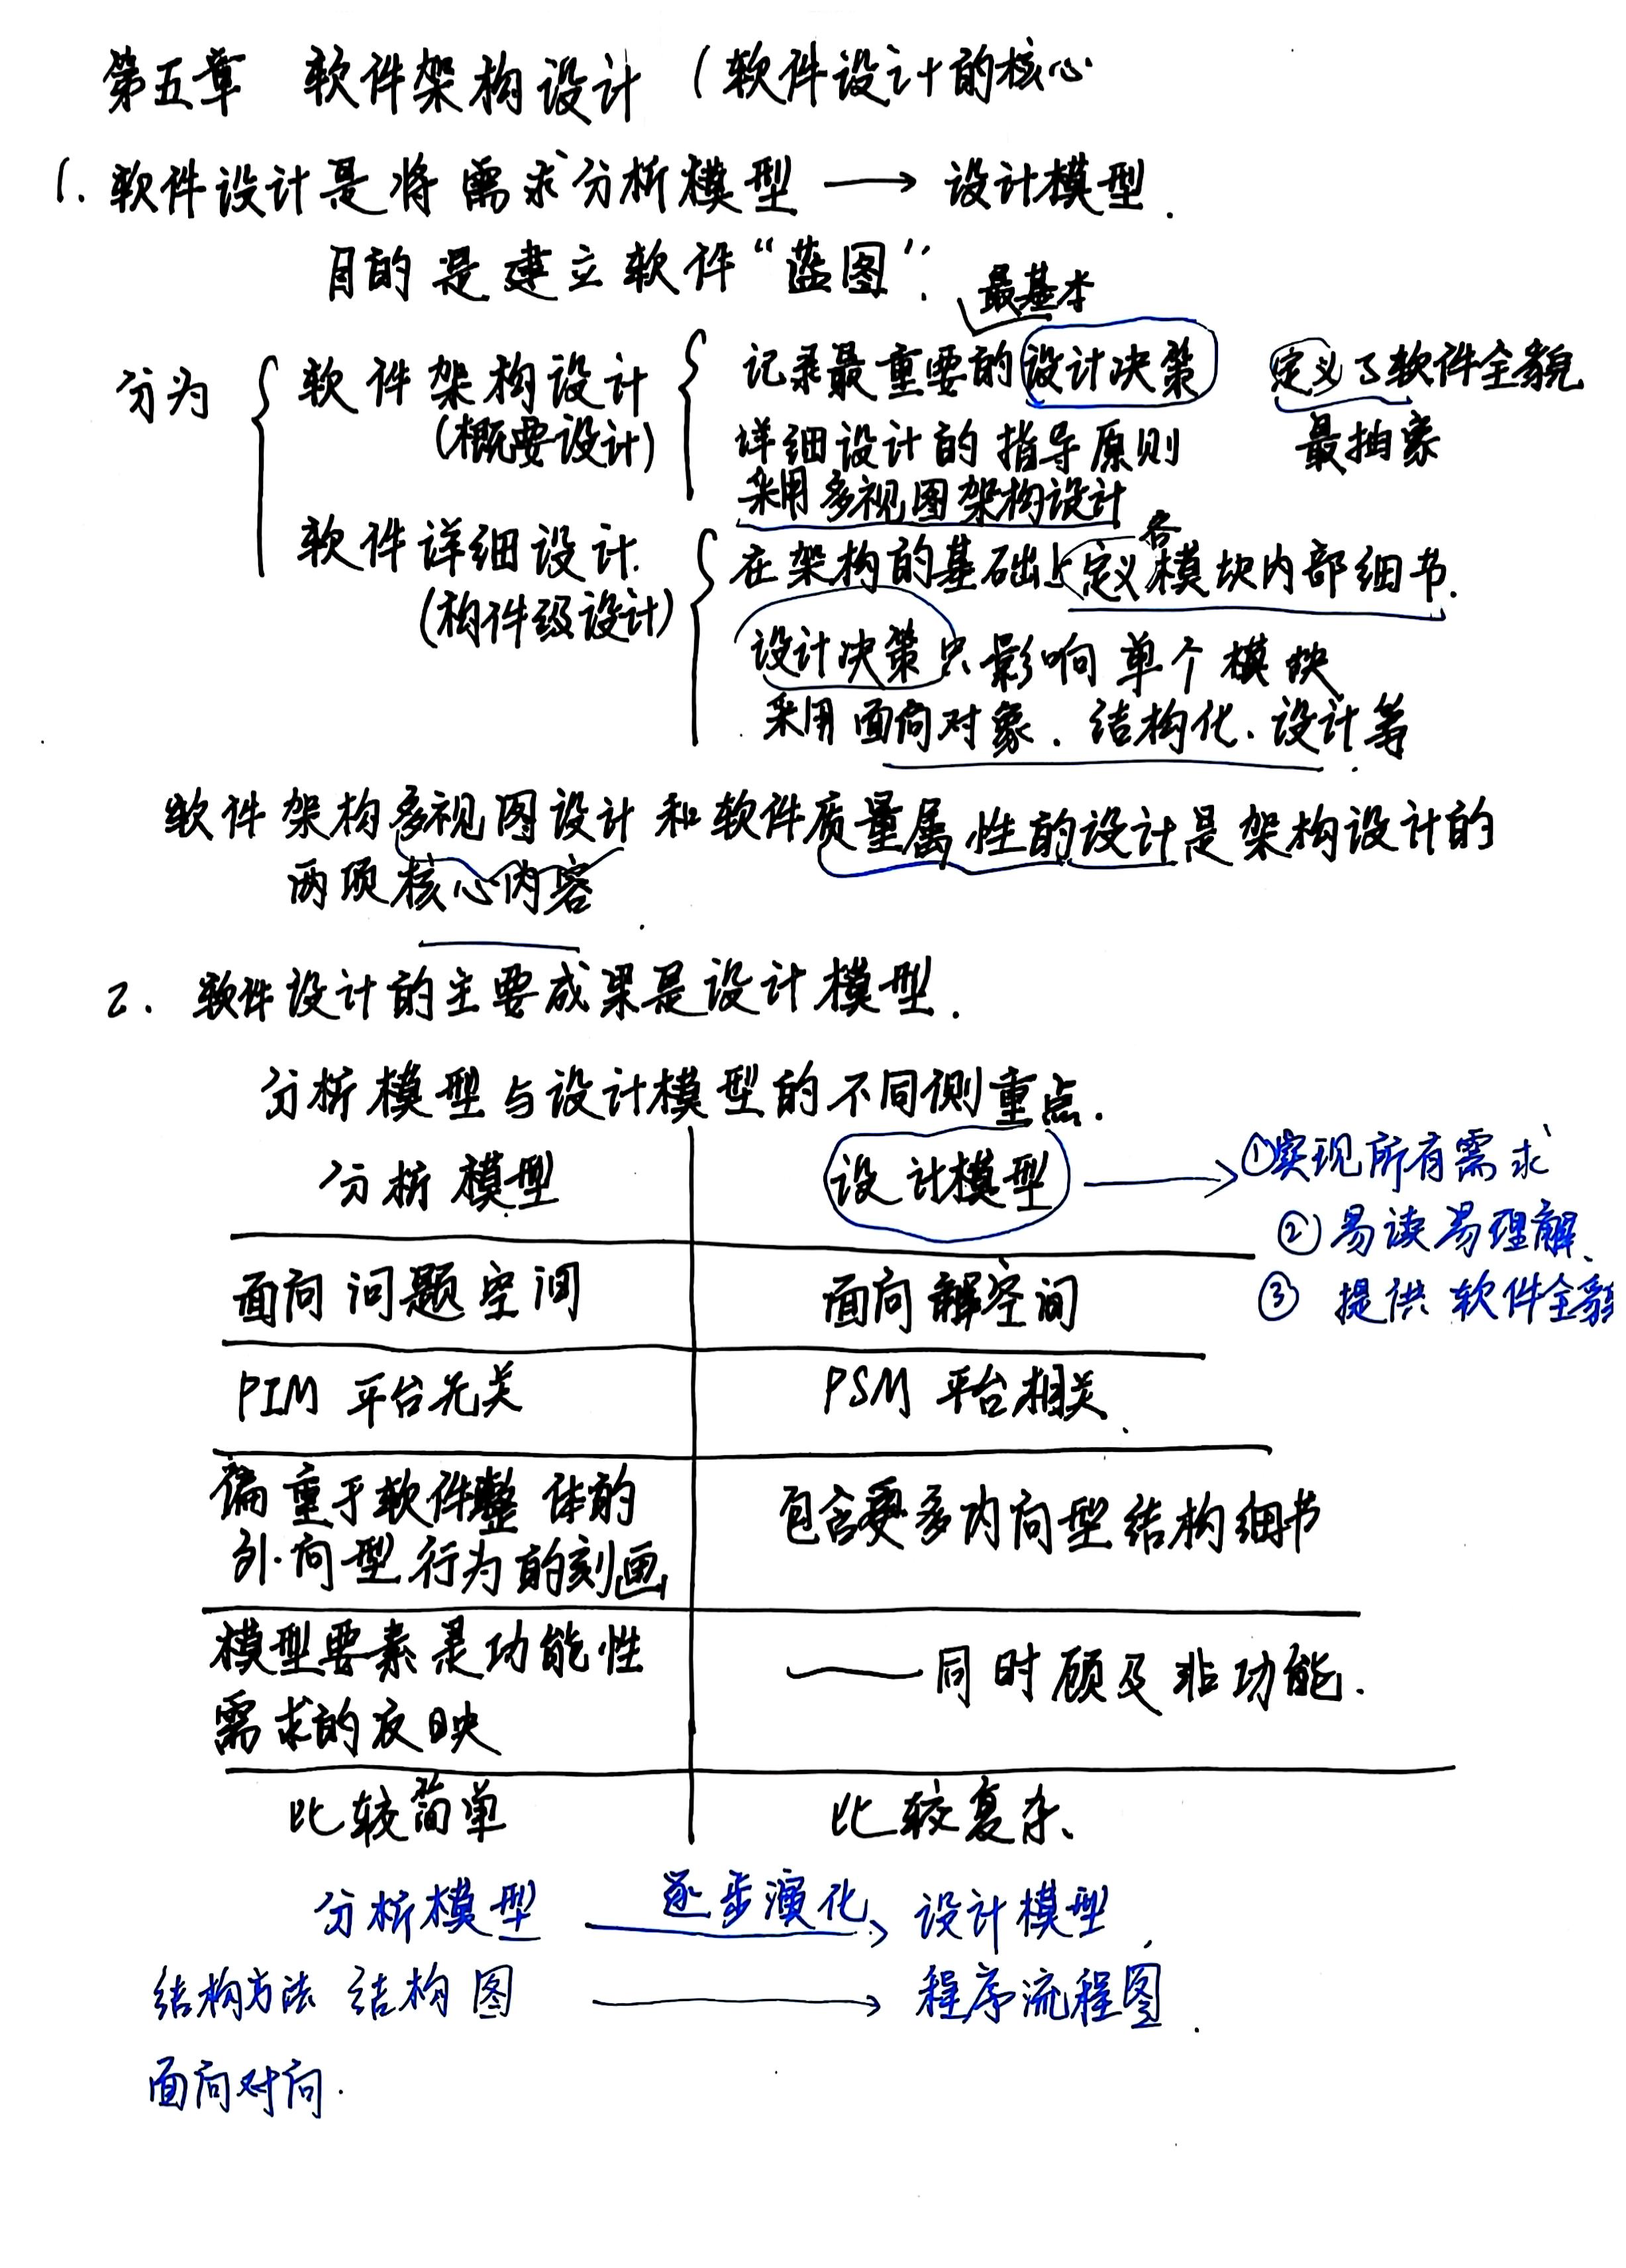 第五章 软件架构设计 (软件设计的核心
1. 软件设计是将需求分析模型 → 设计模型.
目的是建立软件“蓝图”.
最基本
分为 { 软件架构设计 { 记录最重要的设计决策 定义了软件全貌
(概要设计) 详细设计的指导原则 最抽象
采用多视图架构设计
软件详细设计. { 在架构的基础上定义各模块内部细节.
(构件级设计) 设计决策只影响单个模块
采用面向对象、结构化、设计等
软件架构多视图设计和软件质量属性的设计是架构设计的
两项核心内容
2. 软件设计的主要成果是设计模型.
分析模型与设计模型的不同侧重点.
分析模型 设计模型 → ①实现所有需求
②易读易理解、
③ 提供软件全貌
面向问题空间 面向解空间
PIM 平台无关 PSM 平台相关
偏重于软件整体的
外向型行为的刻画 包含更多内向型结构细节
模型要素是功能性
需求的反映 —— 同时顾及非功能.
比较简单 比较复杂、
分析模型 逐步演化→ 设计模型
结构方法 结构图 → 程序流程图.
面向对向.